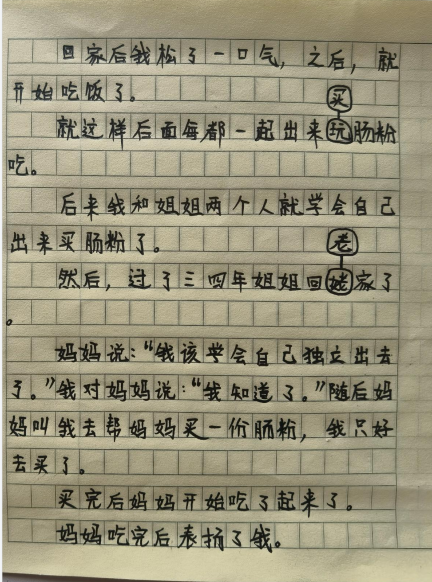 回家后我松了一口气，之后，就
开始吃饭了。
买
就这样后面每都一起出来玩肠粉
吃。
后来我和姐姐两个人就学会自己
出来买肠粉了。
老
然后，过了三四年姐姐回姥家了
。
妈妈说：“我该学会自己独立出去
了。”我对妈妈说：“我知道了。”随后妈
妈叫我去帮妈妈买一份肠粉，我只好
去买了。
买完后妈妈开始吃了起来了。
妈妈吃完后表扬了我。